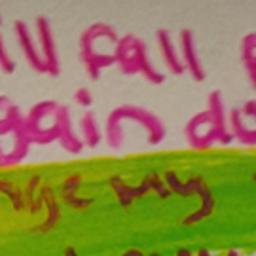 ill fall
gain do
nge my